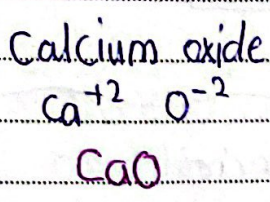 Calcium oxide
Ca⁺² O⁻²
CaO